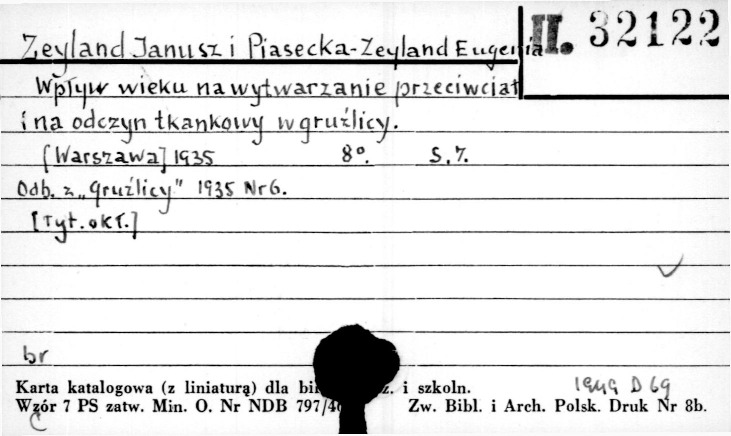 Zeyland Janusz i Piasecka-Zeyland Eugenia
II. 32122
Wpływ wieku na wytwarzanie przeciwciał
i na odczyn tkankowy w gruźlicy.
[Warszawa] 1935 8°. S. 7.
Odb. z „Gruźlicy" 1935 Nr 6.
[Tyt. okł.]
br
1949 D 69
Karta katalogowa (z liniaturą) dla i szkoln.
Wzór 7 PS zatw. Min. O. Nr NDB Zw. Bibl. i Arch. Polsk. Druk Nr 8b.